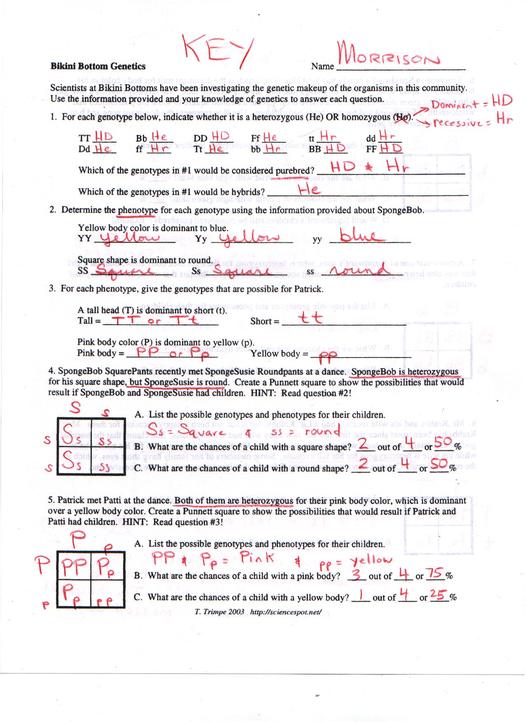 KEY
Bikini Bottom Genetics Name MORRISON
Scientists at Bikini Bottoms have been investigating the genetic makeup of the organisms in this community.
Use the information provided and your knowledge of genetics to answer each question.
Dominant = HD
1. For each genotype below, indicate whether it is a heterozygous (He) OR homozygous (Ho).
recessive = Hr
TT HD Bb He DD HD Ff He tt Hr dd Hr
Dd He ff Hr Tt He bb Hr BB HD FF HD
Which of the genotypes in #1 would be considered purebred? HD & Hr
Which of the genotypes in #1 would be hybrids? He
2. Determine the phenotype for each genotype using the information provided about SpongeBob.
Yellow body color is dominant to blue.
YY yellow Yy yellow yy blue
Square shape is dominant to round.
SS Square Ss Square ss round
3. For each phenotype, give the genotypes that are possible for Patrick.
A tall head (T) is dominant to short (t).
Tall = TT or Tt Short = tt
Pink body color (P) is dominant to yellow (p).
Pink body = PP or Pp Yellow body = pp
4. SpongeBob SquarePants recently met SpongeSusie Roundpants at a dance. SpongeBob is heterozygous
for his square shape, but SpongeSusie is round. Create a Punnett square to show the possibilities that would
result if SpongeBob and SpongeSusie had children. HINT: Read question #2!
S s
s Ss ss
s Ss ss
A. List the possible genotypes and phenotypes for their children.
Ss = Square & ss = round
B. What are the chances of a child with a square shape? 2 out of 4 or 50 %
C. What are the chances of a child with a round shape? 2 out of 4 or 50 %
5. Patrick met Patti at the dance. Both of them are heterozygous for their pink body color, which is dominant
over a yellow body color. Create a Punnett square to show the possibilities that would result if Patrick and
Patti had children. HINT: Read question #3!
P p
P PP Pp
p Pp pp
A. List the possible genotypes and phenotypes for their children.
PP & Pp = Pink & pp = yellow
B. What are the chances of a child with a pink body? 3 out of 4 or 75 %
C. What are the chances of a child with a yellow body? 1 out of 4 or 25 %
T. Trimpe 2003 http://sciencespot.net/